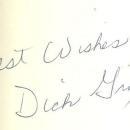 est Wishes
Dick